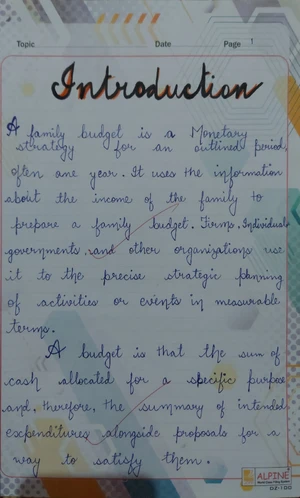 Topic Date Page 1
Introduction
A family budget is a Monetary
strategy for an outlined period,
often one year. It uses the information
about the income of the family to
prepare a family budget. Firms, Individuals
governments, and other organizations use
it to the precise strategic planning
of activities or events in measurable
terms.
A budget is that the sum of
cash allocated for a specific purpose
and, therefore, the summary of intended
expenditures alongside proposals for a
way to satisfy them.
ALPINE